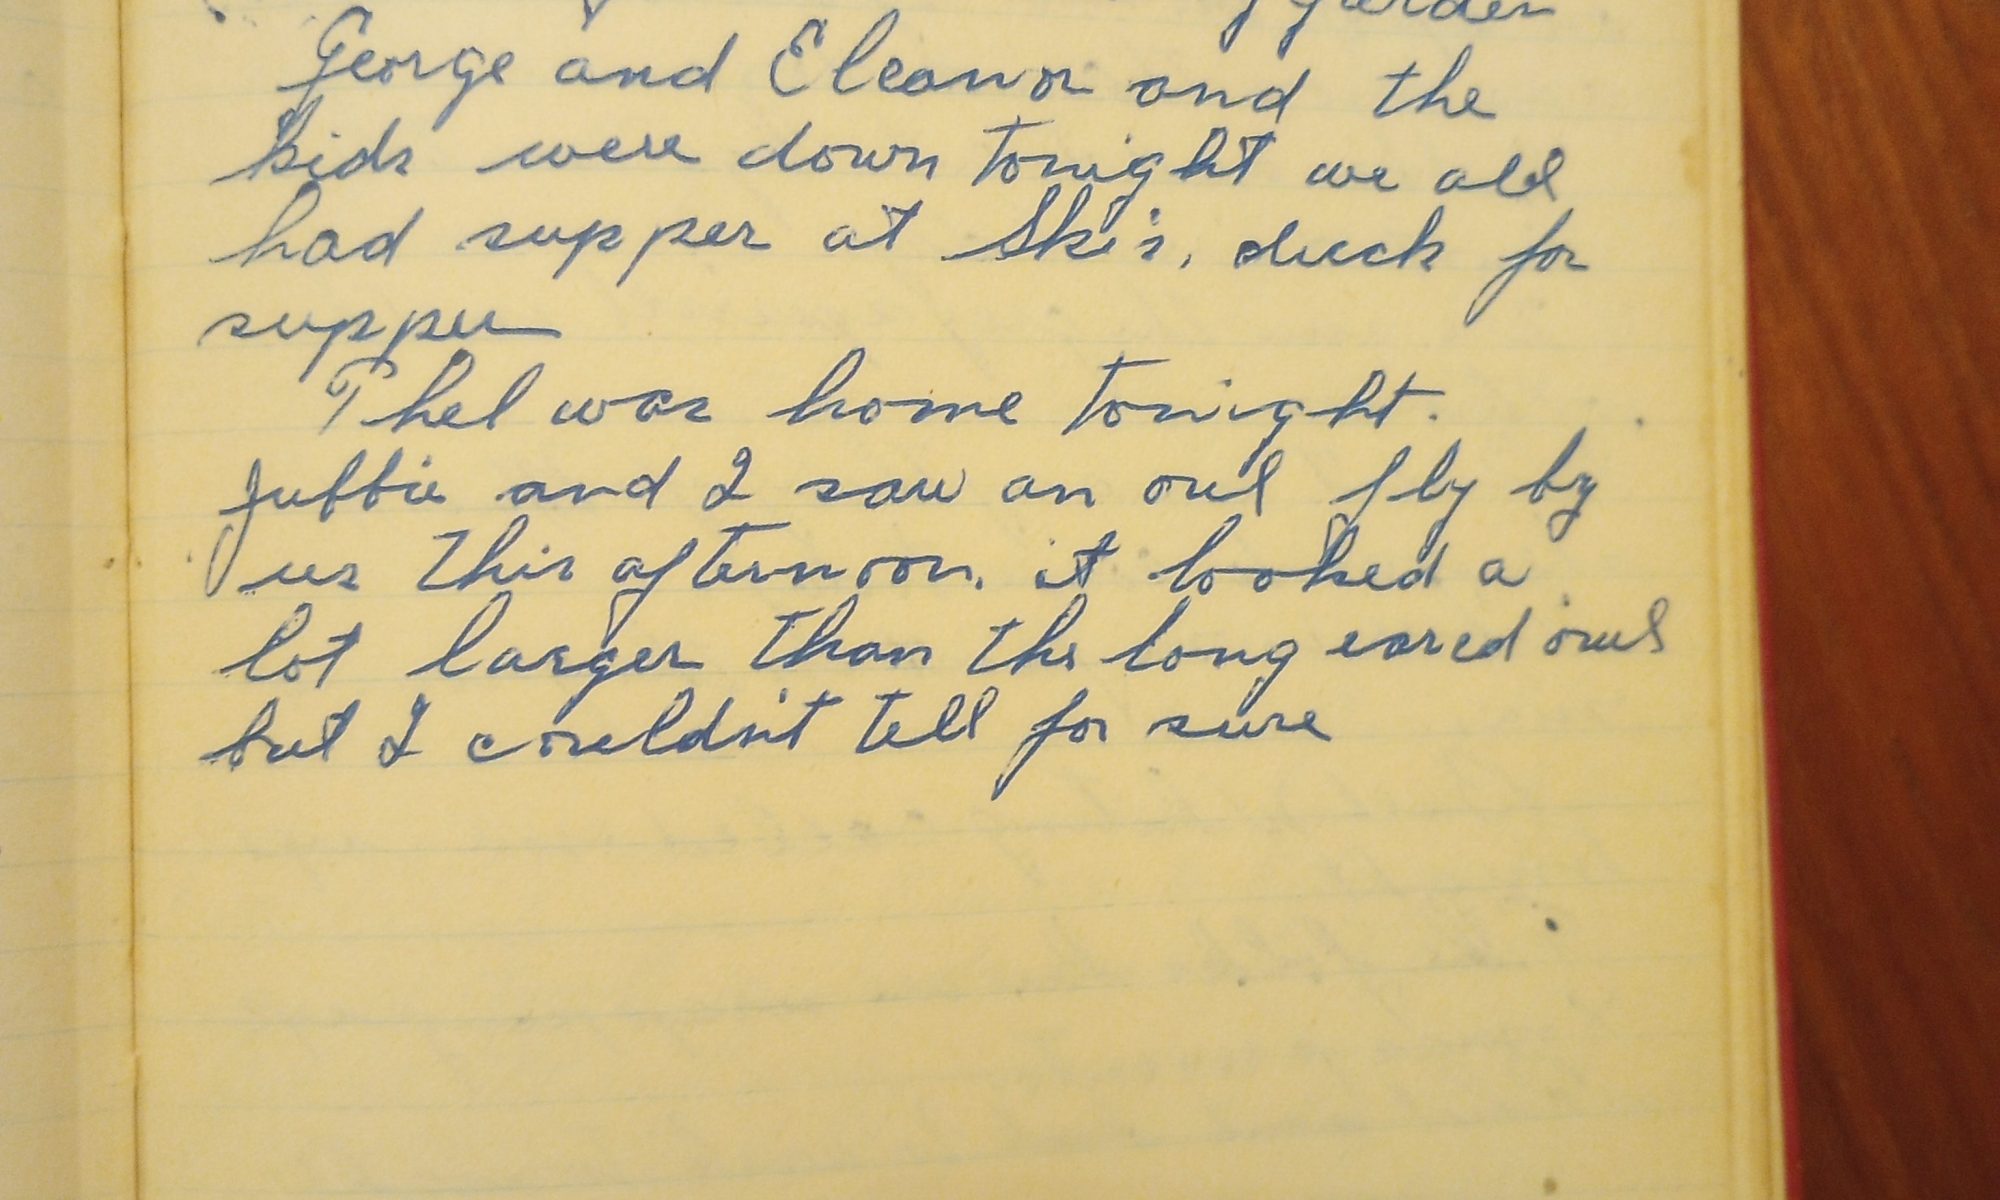 garden
George and Eleanor and the
kids were down tonight we all
had supper at Ski's, duck for
supper
Thel was home tonight.
Jubbie and I saw an owl fly by
us this afternoon, it looked a
lot larger than the long eared owl
but I couldn't tell for sure